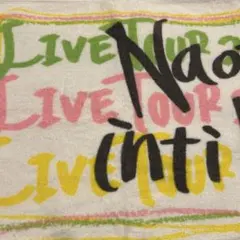 LIVE TOUR 2
Nao
LIVE TOUR
inti
LIVE TOUR